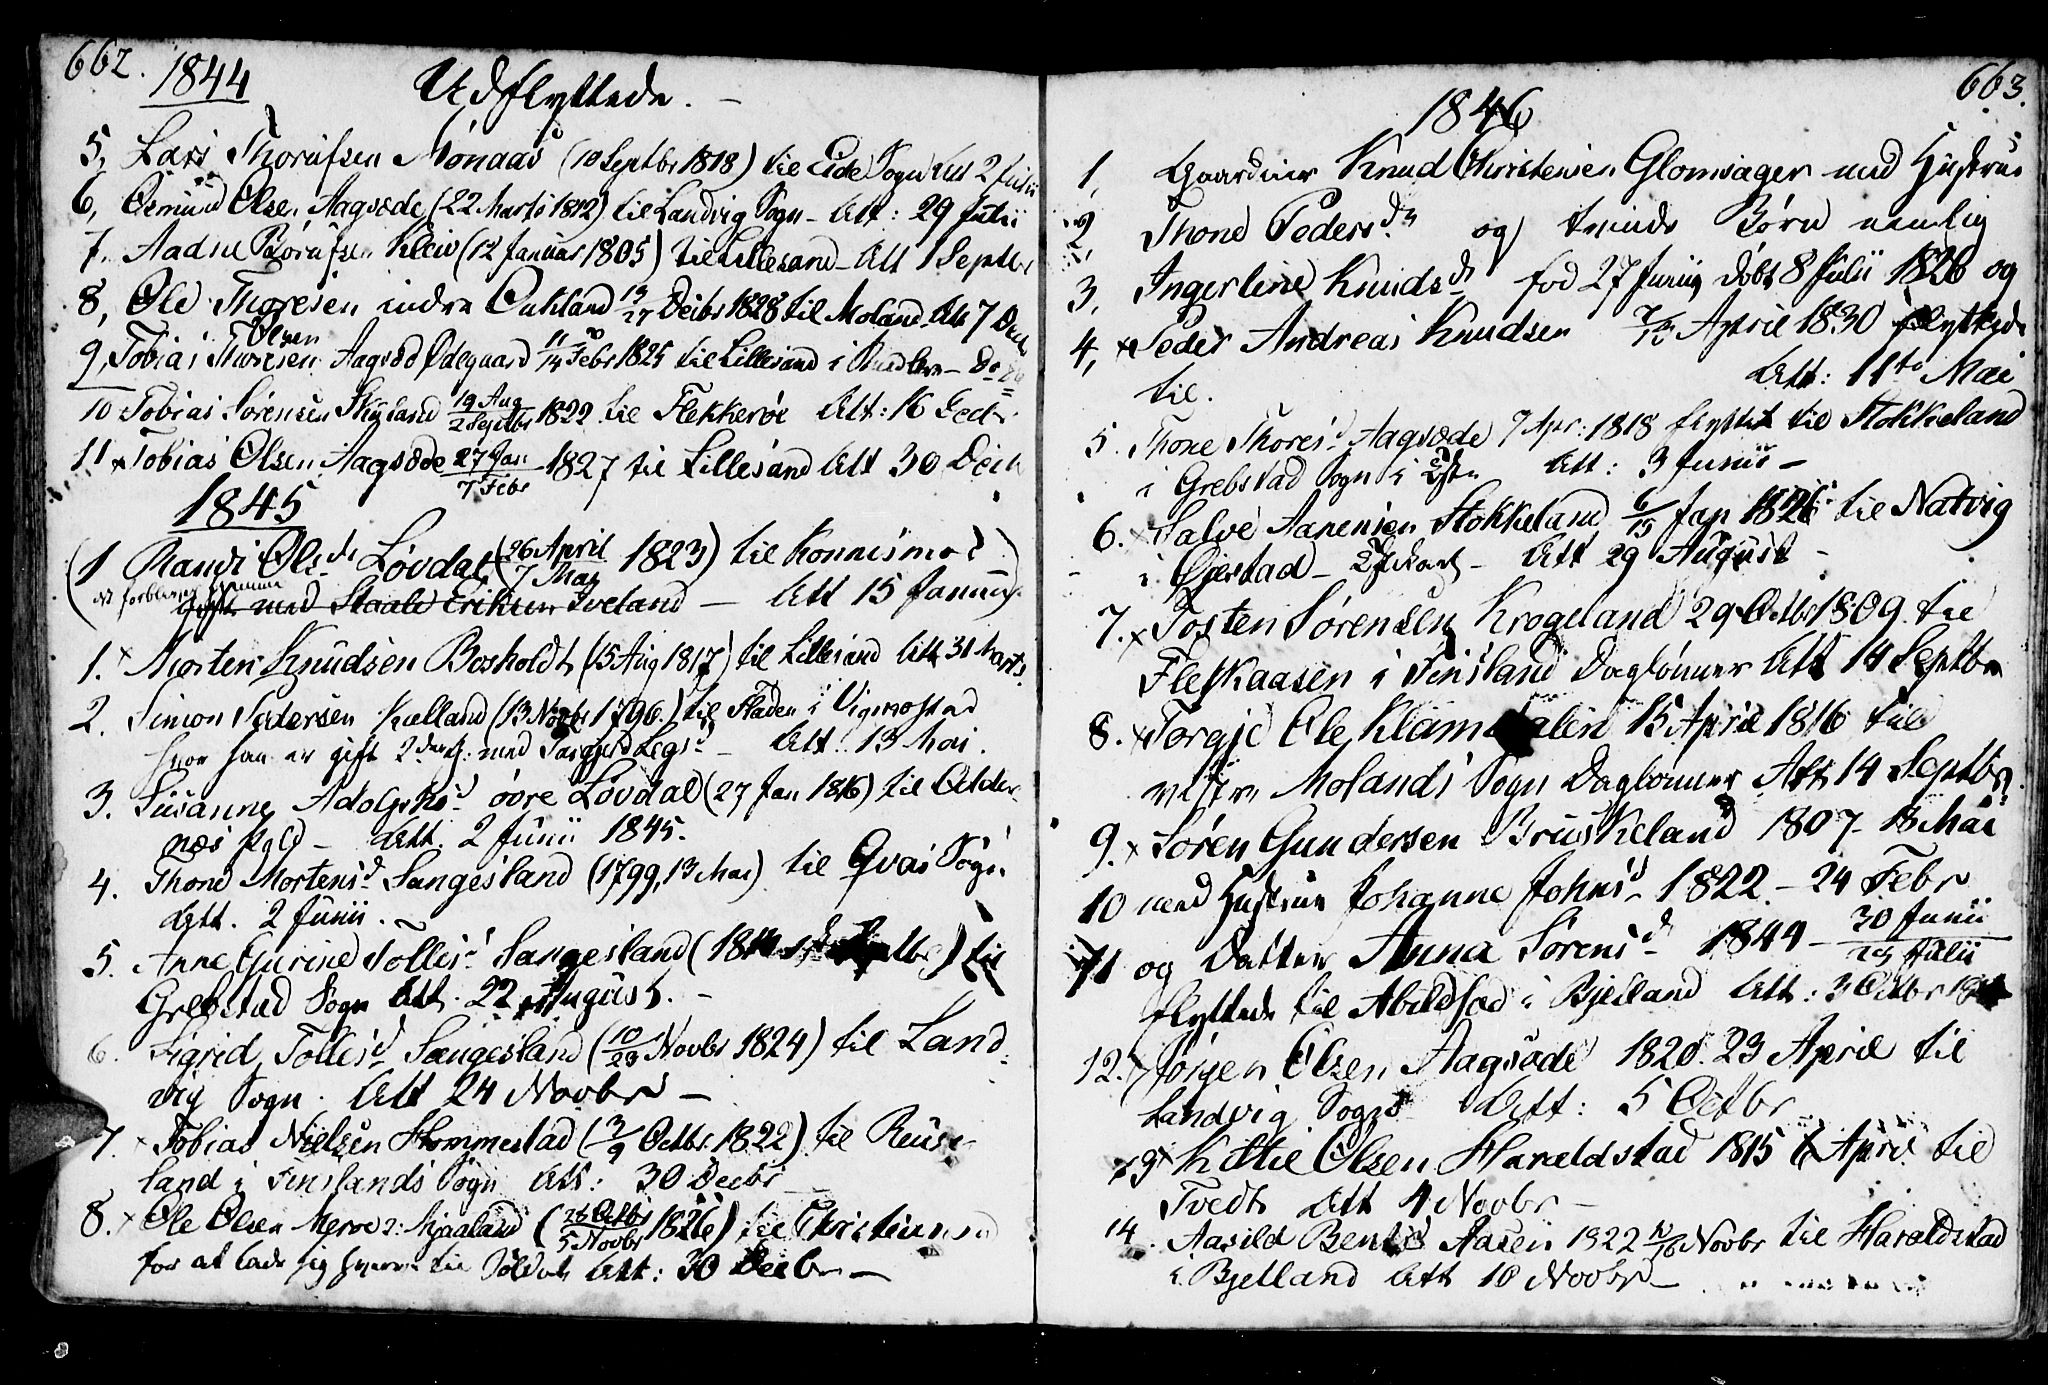 662. 1844 Udflyttede. –
5, Lars Thorufsen Mønaas (10 Septbr 1818) til Eide Sogn Att 2 Julii
6, Osmund Olsen Aagsøde (22 Marts 1812) til Landvig Sogn – Att: 29 Julii
7. Aadne Børufsen Kleiv (12 Januar 1805) til Lillesand – Att 1 Septbr
8, Ole Thoresen indre Oukland 13/27 Decbr 1828 til Moland Att 7 Decb
Olsen
9, Tobias Thoresen Aagsød Ødegaard 11/14 Febr 1825 til Lillesand
10 Tobias Sørensen Skysland 19 Aug/2 Septbr 1822 til Flekkerøe Att: 16
11 × Tobias Olsen Aagsøde 27 Jan/7 Febr 1827 til Lillesand Att 30 Decb
1845
(1 Randi Olsd. Løvdal (26 April/7 May 1823) til Konnismo
gift med Staale Eriksen Iveland – Att 15 Januar)
1. × Morten Knudsen Bosholdt (15 Aug 1817) til Lillesand Att 31 Marts.
2. Simon Pedersen Kalland (13 Novbr 1796) til Fladen i Vigmostad
hvor han er gift 2den G. med – Att. 13 Mai.
3. Susanne Adolphsd. øvre Løvdal (27 Jan 1816) til Odder
næs Pgld – Att. 2 Junii 1845.
4. Thone Mortensd. Sangesland (1799, 13 Mai) til Qvas Sogn
Att. 2 Junii.
5. Anne Gurine Tollesd. Sangesland (18 ) til
Grebstad Sogn Att. 22 August. –
6. Sigrid Tollesd. Sangesland (10/23 Novbr 1824) til Land
vig Sogn. Att 24 Novbr –
7. × Tobias Nielsen Hommestad (3/9 Octbr 1822) til Reus
land i Finslands Sogn Att: 30 Decbr
8. × Ole Olsen Meroe (28 Octbr/5 Novbr 1826) til Christians
for at lade sig hverve til Soldat Att: 30 Decbr –
663.
1846
1, Gaardmr Knud Christensen Glomsager med Hustrue
2, Thone Pedersd. og tvende Børn nemlig
3, Ingerline Knudsd. fød 27 Junii døbt 8 Julii 1826 og
4, × Peder Andreas Knudsen April 1830 flyttede
til. Att: 11te Mai
5. Thone Thoresd. Aagsøde 7 Apr: 1818 flyttet til Stokkeland
i Grebstad Sogn Att: 3 Junii –
6. × Salve Aanensen Stokkeland 6/19 Jan 1826 til Natvig
i Øjestad – – Att 29 August –
7. × Tosten Sørensen Krogeland 29 Octbr 1809 til
Fleskaasen i Finsland Daglønner Att 14 Septbr
8. × Torgje Ole 15 April 1816 til
vestre Molands Sogn Daglønner Att 14 Septbr.
9. × Søren Gundersen Bruskeland 1807 – 13 Mai
10 med Hustrue Johanne Johnsd. 1822 – 24 Febr
11 og Datter Anna Sørensd. 1844 – 30 Junii/ Julii
flyttede til Abildstad i Bjelland Att: 3 Octbr
12. × Jørgen Olsen Aagsøde 1820. 23 April til
Landvig Sogn Att: 5 Octbr
13 × Kittil Olsen Haraldstad 1815 6 April til
Tvedt Att 4 Novbr –
14. Aasild Bentsd. Aasen 1822 Novbr til Haraldstad
i Bjelland Att 10 Novbr –